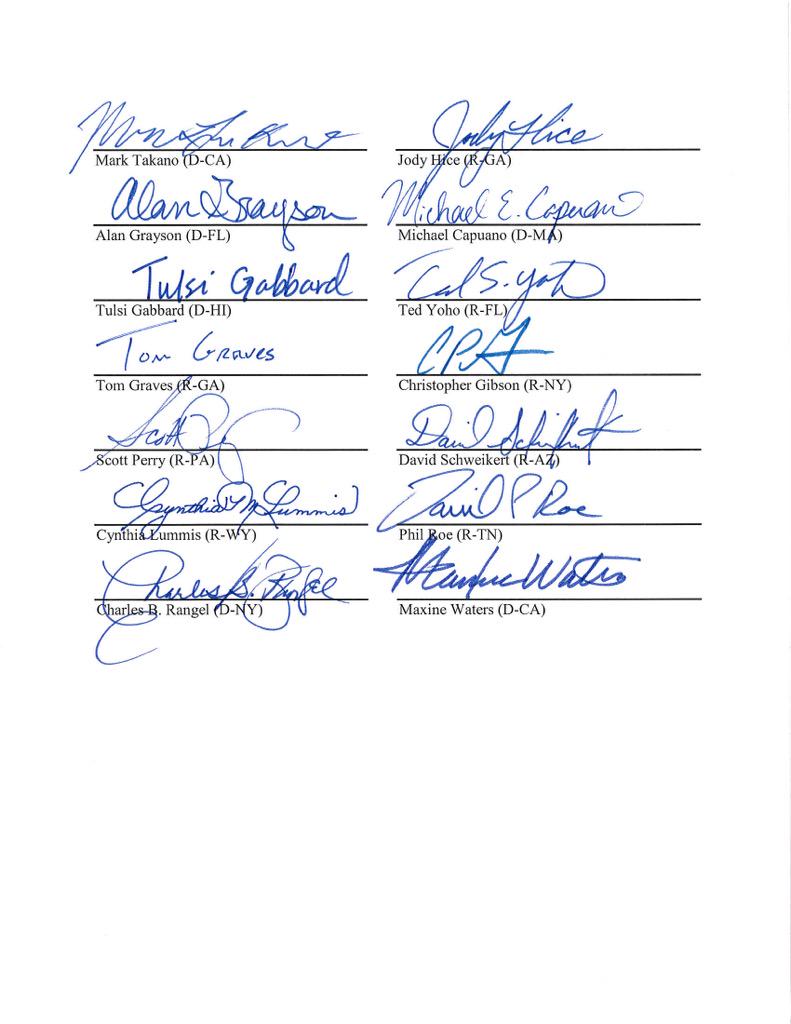 Jody Hice
Mark Takano (D-CA)
Jody Hice (R-GA)
Alan Grayson
Michael E. Capuano
Alan Grayson (D-FL)
Michael Capuano (D-MA)
Tulsi Gabbard
Ted S. Yoho
Tulsi Gabbard (D-HI)
Ted Yoho (R-FL)
Tom Graves
Tom Graves (R-GA)
Christopher Gibson (R-NY)
Scott
David Schweikert
Scott Perry (R-PA)
David Schweikert (R-AZ)
Cynthia M Lummis
David P Roe
Cynthia Lummis (R-WY)
Phil Roe (R-TN)
Charles B. Rangel
Maxine Waters
Charles B. Rangel (D-NY)
Maxine Waters (D-CA)